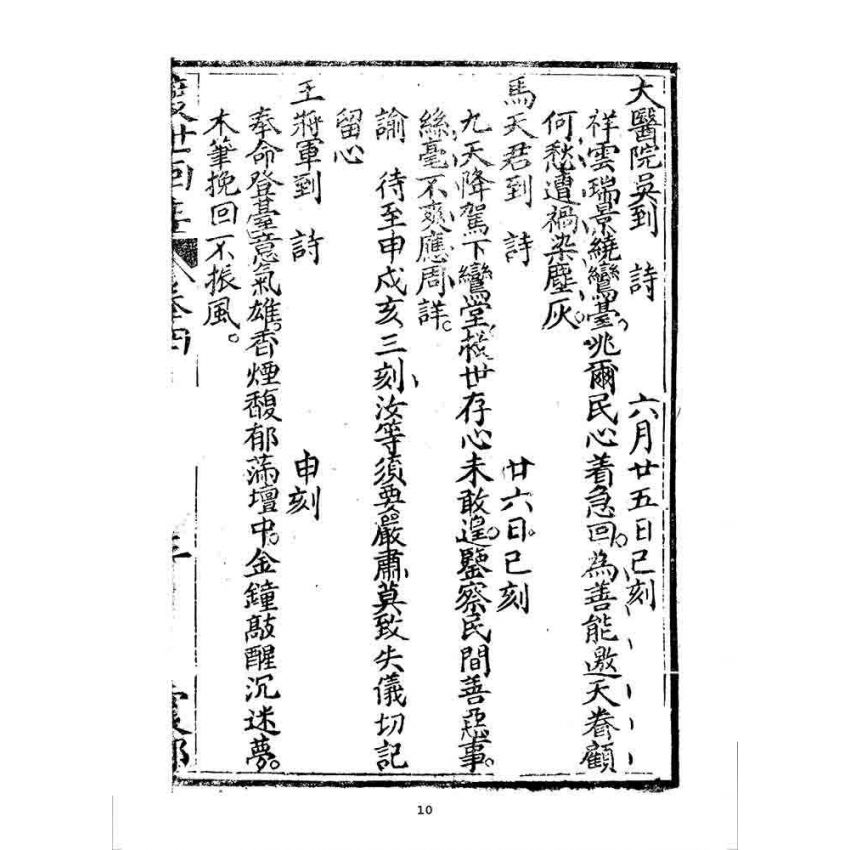 大醫院吳到　詩　六月廿五日巳刻
祥雲瑞景繞鸞臺。咷爾民心着急回。為善能邀天眷顧
何愁遭禍染塵灰。
馬天君到　詩　廿六日巳刻
九天降駕下鸞堂。救世存心未敢遑。鑒察民間善惡事。
絲毫不爽應周詳。
諭　待至申戍亥三刻、汝等須要嚴肅、莫致失儀切記
留心
王將軍到　詩　申刻
奉命登臺意氣雄。香煙馥郁滿壇中。金鐘敲醒沉迷夢。
木筆挽回不振風。
卷四
10